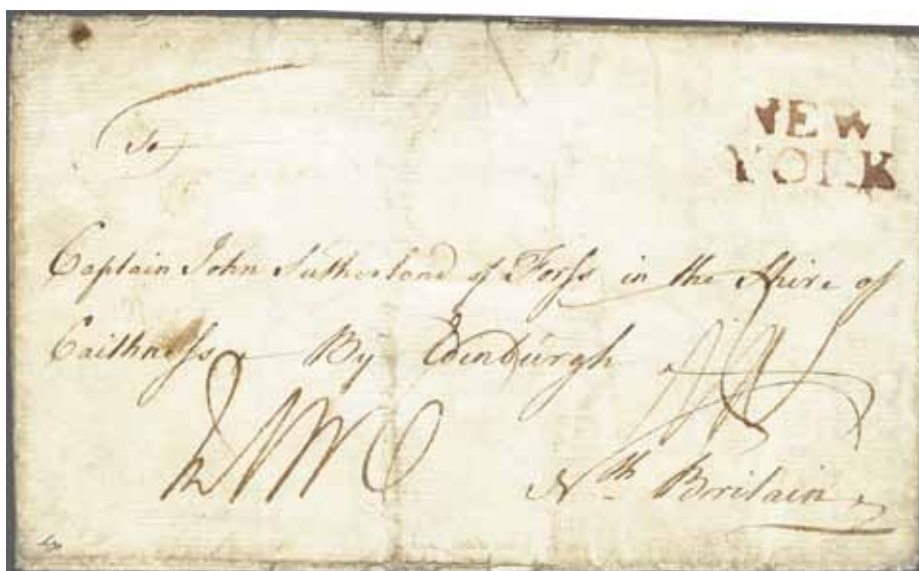 NEW
YORK
To
Captain John Sutherland of Forss in the Shire of
Caithness By Edinburgh
Nth Britain